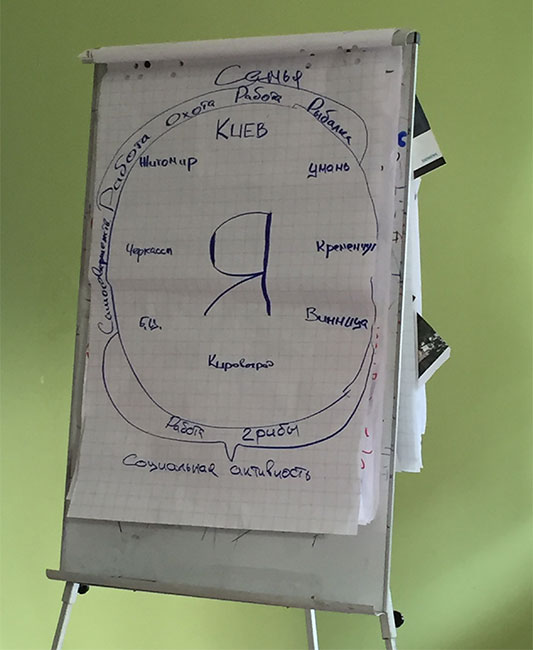 Семья
Работа Охота Работа Рыбалка
Киев
Житомир
Умань
Черкассы
Я
Кременчуг
Б.Ц.
Винница
Кировоград
Работа грибы
Социальная активность